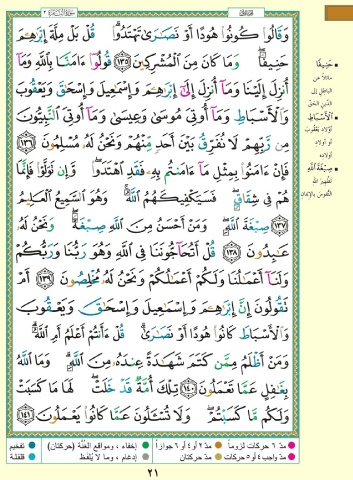 سورة البقرة ٢
وَقَالُوا۟ كُونُوا۟ هُودًا أَوْ نَصَـٰرَىٰ تَهْتَدُوا۟ ۗ قُلْ بَلْ مِلَّةَ إِبْرَٰهِـۧمَ
حَنِيفًا ۖ وَمَا كَانَ مِنَ ٱلْمُشْرِكِينَ ١٣٥ قُولُوٓا۟ ءَامَنَّا بِٱللَّهِ وَمَآ
أُنزِلَ إِلَيْنَا وَمَآ أُنزِلَ إِلَىٰٓ إِبْرَٰهِـۧمَ وَإِسْمَـٰعِيلَ وَإِسْحَـٰقَ وَيَعْقُوبَ
وَٱلْأَسْبَاطِ وَمَآ أُوتِىَ مُوسَىٰ وَعِيسَىٰ وَمَآ أُوتِىَ ٱلنَّبِيُّونَ
مِن رَّبِّهِمْ لَا نُفَرِّقُ بَيْنَ أَحَدٍ مِّنْهُمْ وَنَحْنُ لَهُۥ مُسْلِمُونَ ١٣٦
فَإِنْ ءَامَنُوا۟ بِمِثْلِ مَآ ءَامَنتُم بِهِۦ فَقَدِ ٱهْتَدَوا۟ ۖ وَّإِن تَوَلَّوْا۟ فَإِنَّمَا
هُمْ فِى شِقَاقٍ ۖ فَسَيَكْفِيكَهُمُ ٱللَّهُ ۚ وَهُوَ ٱلسَّمِيعُ ٱلْعَلِيمُ
١٣٧ صِبْغَةَ ٱللَّهِ ۖ وَمَنْ أَحْسَنُ مِنَ ٱللَّهِ صِبْغَةً ۖ وَنَحْنُ لَهُۥ
عَـٰبِدُونَ ١٣٨ قُلْ أَتُحَآجُّونَنَا فِى ٱللَّهِ وَهُوَ رَبُّنَا وَرَبُّكُمْ
وَلَنَآ أَعْمَـٰلُنَا وَلَكُمْ أَعْمَـٰلُكُمْ وَنَحْنُ لَهُۥ مُخْلِصُونَ ١٣٩ أَمْ
تَقُولُونَ إِنَّ إِبْرَٰهِـۧمَ وَإِسْمَـٰعِيلَ وَإِسْحَـٰقَ وَيَعْقُوبَ
وَٱلْأَسْبَاطَ كَانُوا۟ هُودًا أَوْ نَصَـٰرَىٰ ۗ قُلْ ءَأَنتُمْ أَعْلَمُ أَمِ ٱللَّهُ ۗ
وَمَنْ أَظْلَمُ مِمَّن كَتَمَ شَهَـٰدَةً عِندَهُۥ مِنَ ٱللَّهِ ۗ وَمَا ٱللَّهُ
بِغَـٰفِلٍ عَمَّا تَعْمَلُونَ ١٤٠ تِلْكَ أُمَّةٌ قَدْ خَلَتْ ۖ لَهَا مَا كَسَبَتْ
وَلَكُم مَّا كَسَبْتُمْ ۖ وَلَا تُسْـَٔلُونَ عَمَّا كَانُوا۟ يَعْمَلُونَ ١٤١
حَنِيفًا
مائلاً عن
الباطل إلى
الدين الحق
الأسباط
أولاد يعقوب
أو أولاد
أولاده
صبغة الله
مدّ ٦ حركات لزوماً مدّ ٢ أو ٤ أو ٦ جوازاً إخفاء، ومواقع الغُنَّة (حركتان) تفخيم
مدّ واجب ٤ أو ٥ حركات مدّ حركتان إدغام، وما لا يُلفَظ قلقلة
٢١